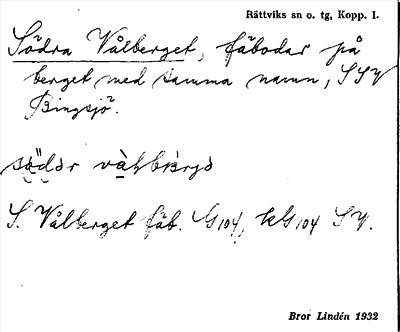 Rättviks sn o. tg, Kopp. l.
Södra Vålberget, fäbodar på
berget med samma namn, SSV
Bingsjö.
S. Vålberget fäb. G 104, kG 104 SV.
Bror Lindén 1932